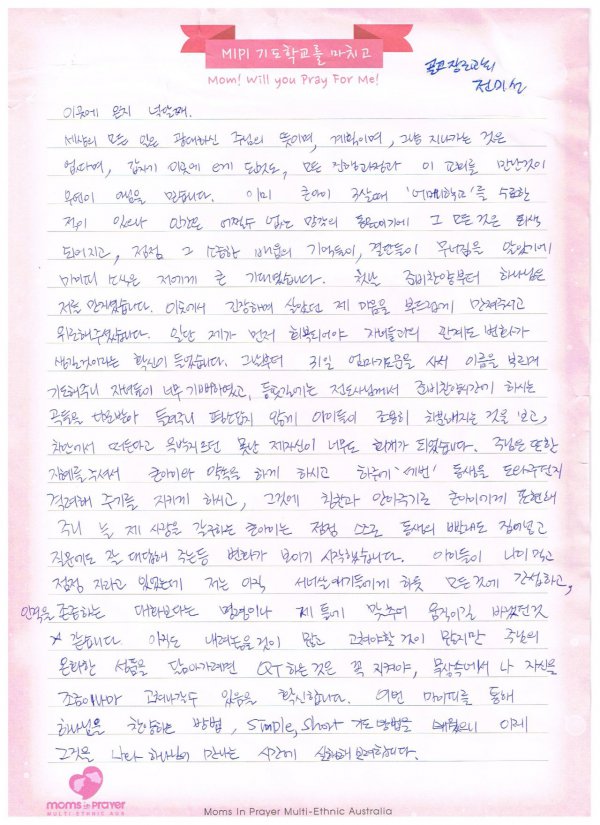 MIPI 기도학교를 마치고
Mom! Will you Pray For Me!
전미선
이곳에 온지 넉달째.
세상의 모든 일은 광대하신 주님의 뜻이며, 계획이며, 그냥 지나가는 것은
없다며, 갑자기 이곳에 오게 된것도, 모든 진행과정과 이 교회를 만난것이
우연이 아님을 믿습니다. 이미 큰아이 3살때 '어머니학교'를 수료한
적이 있으나 인간은 어쩔수 없는 망각의 동물이기에 그 모든 것은 퇴색
되어지고, 점점 그 소중한 배움의 기억들이, 결단들이 무너짐을 알았기에
마미피 소식은 저에게 큰 기대였습니다. 첫날 준비찬양부터 하나님은
저를 만지셨습니다. 이곳에서 긴장하며 살았던 제 마음을 부드럽게 만져주시고
위로해주셨습니다. 일단 제가 먼저 회복되어야 자녀들과의 관계도 변화가
생길것이라는 확신이 들었습니다. 그날부터 31일 엄마기도문을 사서 이름을 부르며
기도해주니 자녀들이 너무 기뻐하였고, 등교길에는 전도사님께서 준비찬양시간에 하시는
곡들을 다운받아 들려주니 아이들이 조용히 차분해지는 것을 보고,
차안에서 떠든다고 윽박지르던 못난 제자신이 너무도 회개가 되었습니다. 주님은 또한
지혜를 주셔서 큰아이와 약속을 하게 하시고 하루에 '세번' 동생을 도와주던지
격려해 주기를 지키게 하시고, 그것에 칭찬과 안아주기로 큰아이에게 표현해
주니 늘 제 사랑을 갈구하는 큰아이는 점점 스스로 동생의 빨래도 집어넣고
질문에도 잘 대답해 주는등 변화가 보이기 시작했습니다. 아이들이 나이먹고
점점 자라고 있었는데 저는 아직 서너살 애기들에게 하듯 모든것에 간섭하고,
인격을 존중하는 대화보다는 명령이나 제 틀에 맞추어 움직이길 바랬던것
같습니다. 아직도 내려놓을것이 많고 고쳐야할 것이 많지만 주님의
온화한 성품을 닮아가려면 QT하는것은 꼭 지켜야, 묵상속에서 나 자신을
조금이나마 고쳐나갈수 있음을 확신합니다. 이번 마미피를 통해
하나님을 찬양하는 방법, Simple, Short 기도방법을 배웠으니 이제
그것을 나와 하나님이 만나는 시간에 실천해보려합니다.
moms in prayer
MULTI-ETHNIC AUS
Moms In Prayer Multi-Ethnic Australia